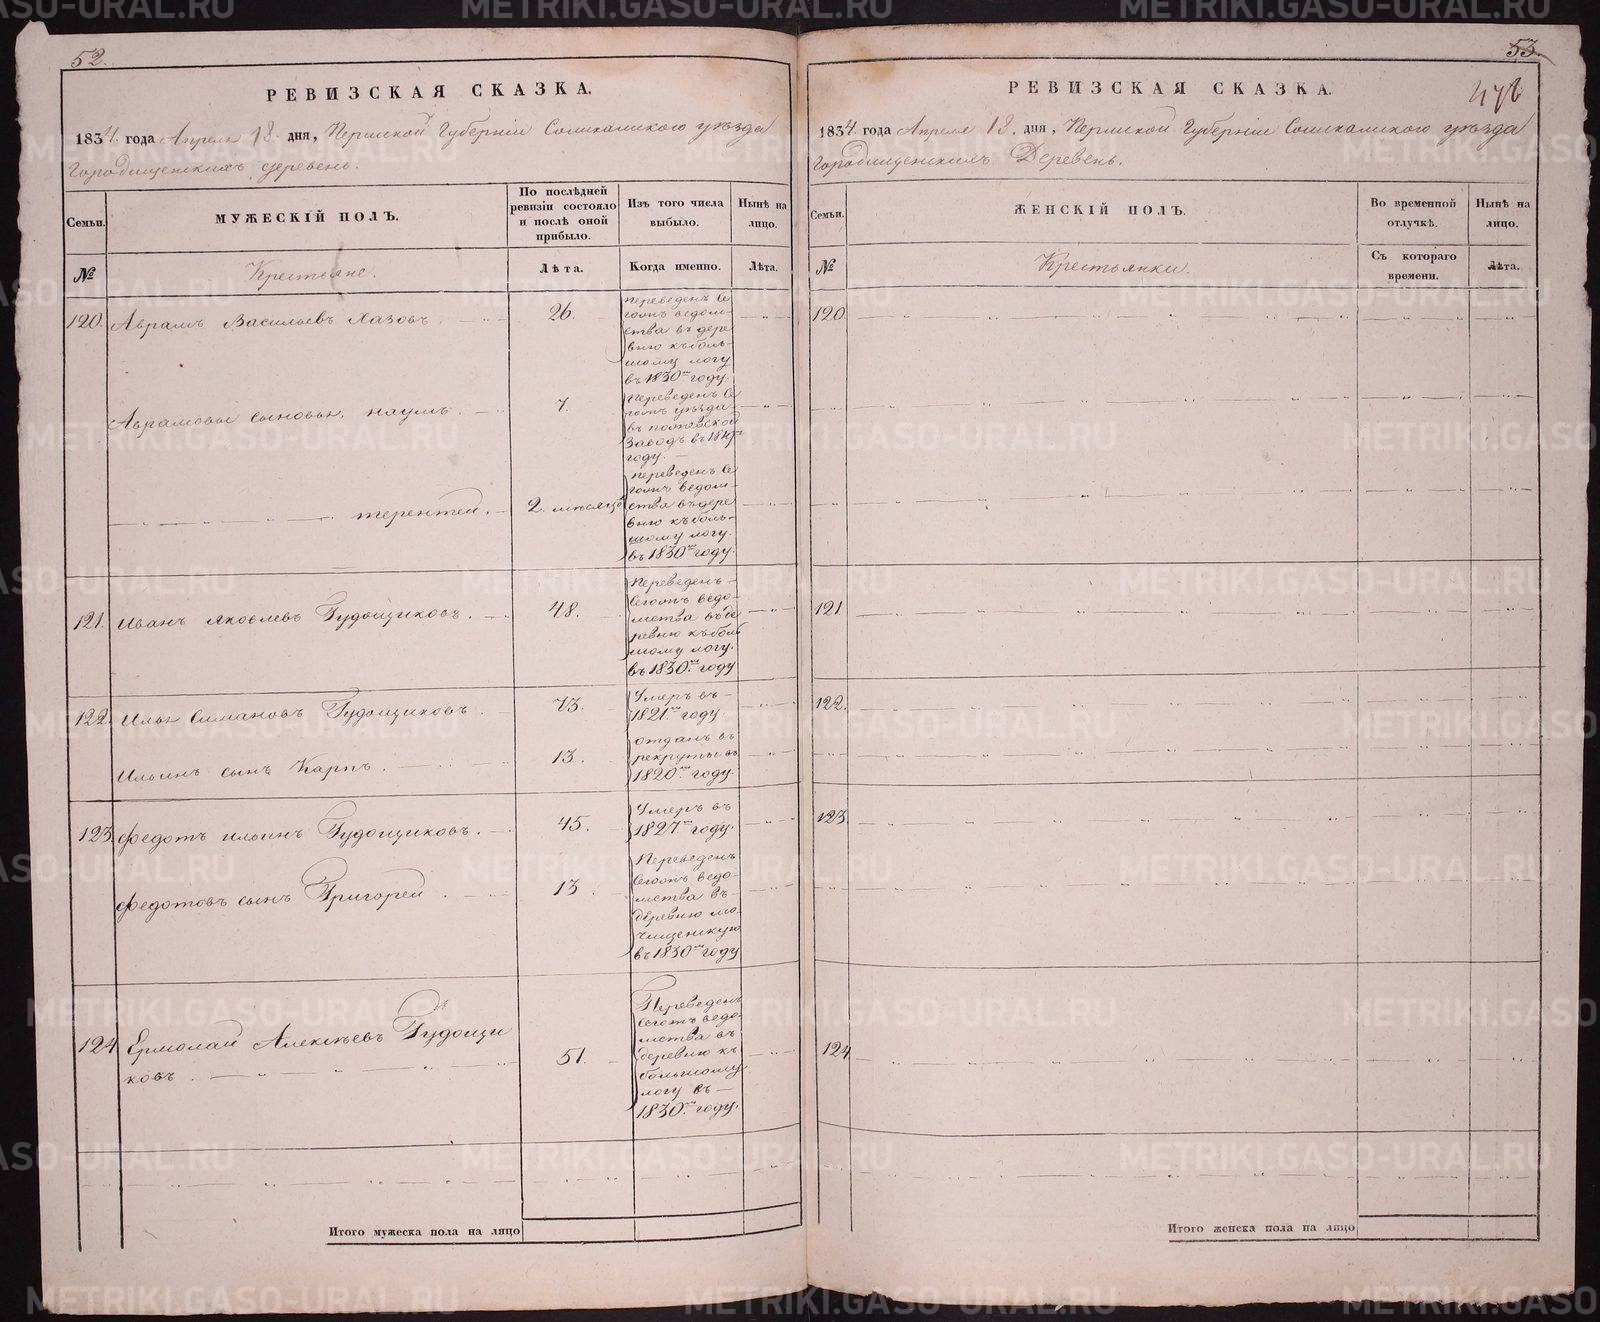 52.
РЕВИЗСКАЯ СКАЗКА.
1834. года Апреля 18. дня, Пермской Губернiи Соликамского уѣзда
Городищенскихъ деревень.
Семьи.
МУЖЕСКIЙ ПОЛЪ.
По послѣдней ревизiи состояло и послѣ оной прибыло.
Изъ того числа выбыло.
Нынѣ на лицо.
№
Крестьяне.
Лѣта.
Когда именно.
Лѣта.
120. Аврамъ Васильевъ Хазовъ. 26.
переведенъ Се
гожъ ведом-
ства въ дере
вню къ боль-
шому логу
въ 1830мъ году.
Аврамовы сыновья. наумъ. 7.
Переведенъ Се
гожъ уѣзда
въ
Заводъ въ
году. —
терентей. 2. мѣсяцовъ
переведенъ Се
гожъ ведом-
ства въ дере
вню къ боль-
шому логу.
въ 1830мъ году.
121. Иванъ яковлевъ Гудощиковъ. 48.
Переведенъ —
Сегожъ ведо-
мства въ де
ревню къ боль
шому логу.
въ 1830.мъ году
122. Илья Симановъ Гудощиковъ. 73.
Умеръ въ —
1821.мъ году.
Ильинъ сынъ Карпъ. 13.
отданъ въ
рекруты въ
1820.мъ году.
123. федотъ ильинъ Гудощиковъ. 45.
Умеръ въ
1827мъ году.
федотовъ сынъ Григорей. 13.
Переведенъ
Сегожъ ведо-
мства въ —
деревню мо-
чищенскую
въ 1830мъ году
124. Ермолай Алексѣевъ Гудощи
ковъ. 51.
Переведенъ
Сегожъ ведо-
мства въ
деревню къ
большому
логу въ —
1830.мъ году.
Итого мужеска пола на лицо
53.
РЕВИЗСКАЯ СКАЗКА.
1834. года Апреля 18. дня, Пермской Губернiи Соликамского уѣзда
Городищенскихъ Деревень.
Семьи.
ЖЕНСКIЙ ПОЛЪ.
Во временной отлучкѣ.
Нынѣ на лицо.
№
Крестьянки.
Съ котораго времени.
Лѣта.
120.
121
122.
123.
124.
Итого женска пола на лицо
METRIKI.GASO-URAL.RU